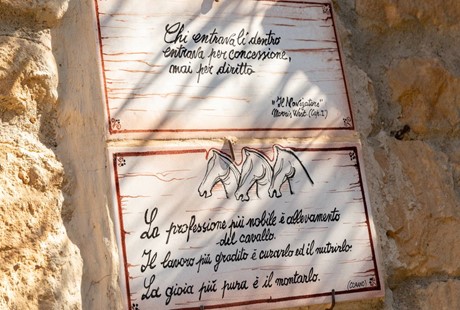 Chi entrava lì dentro
entrava per concessione,
mai per diritto
"Il Navigatore"
(Cap. I)
La professione più nobile è allevamento
del cavallo.
Il lavoro più gradito è curarlo ed il nutrirlo.
La gioia più pura è il montarlo.